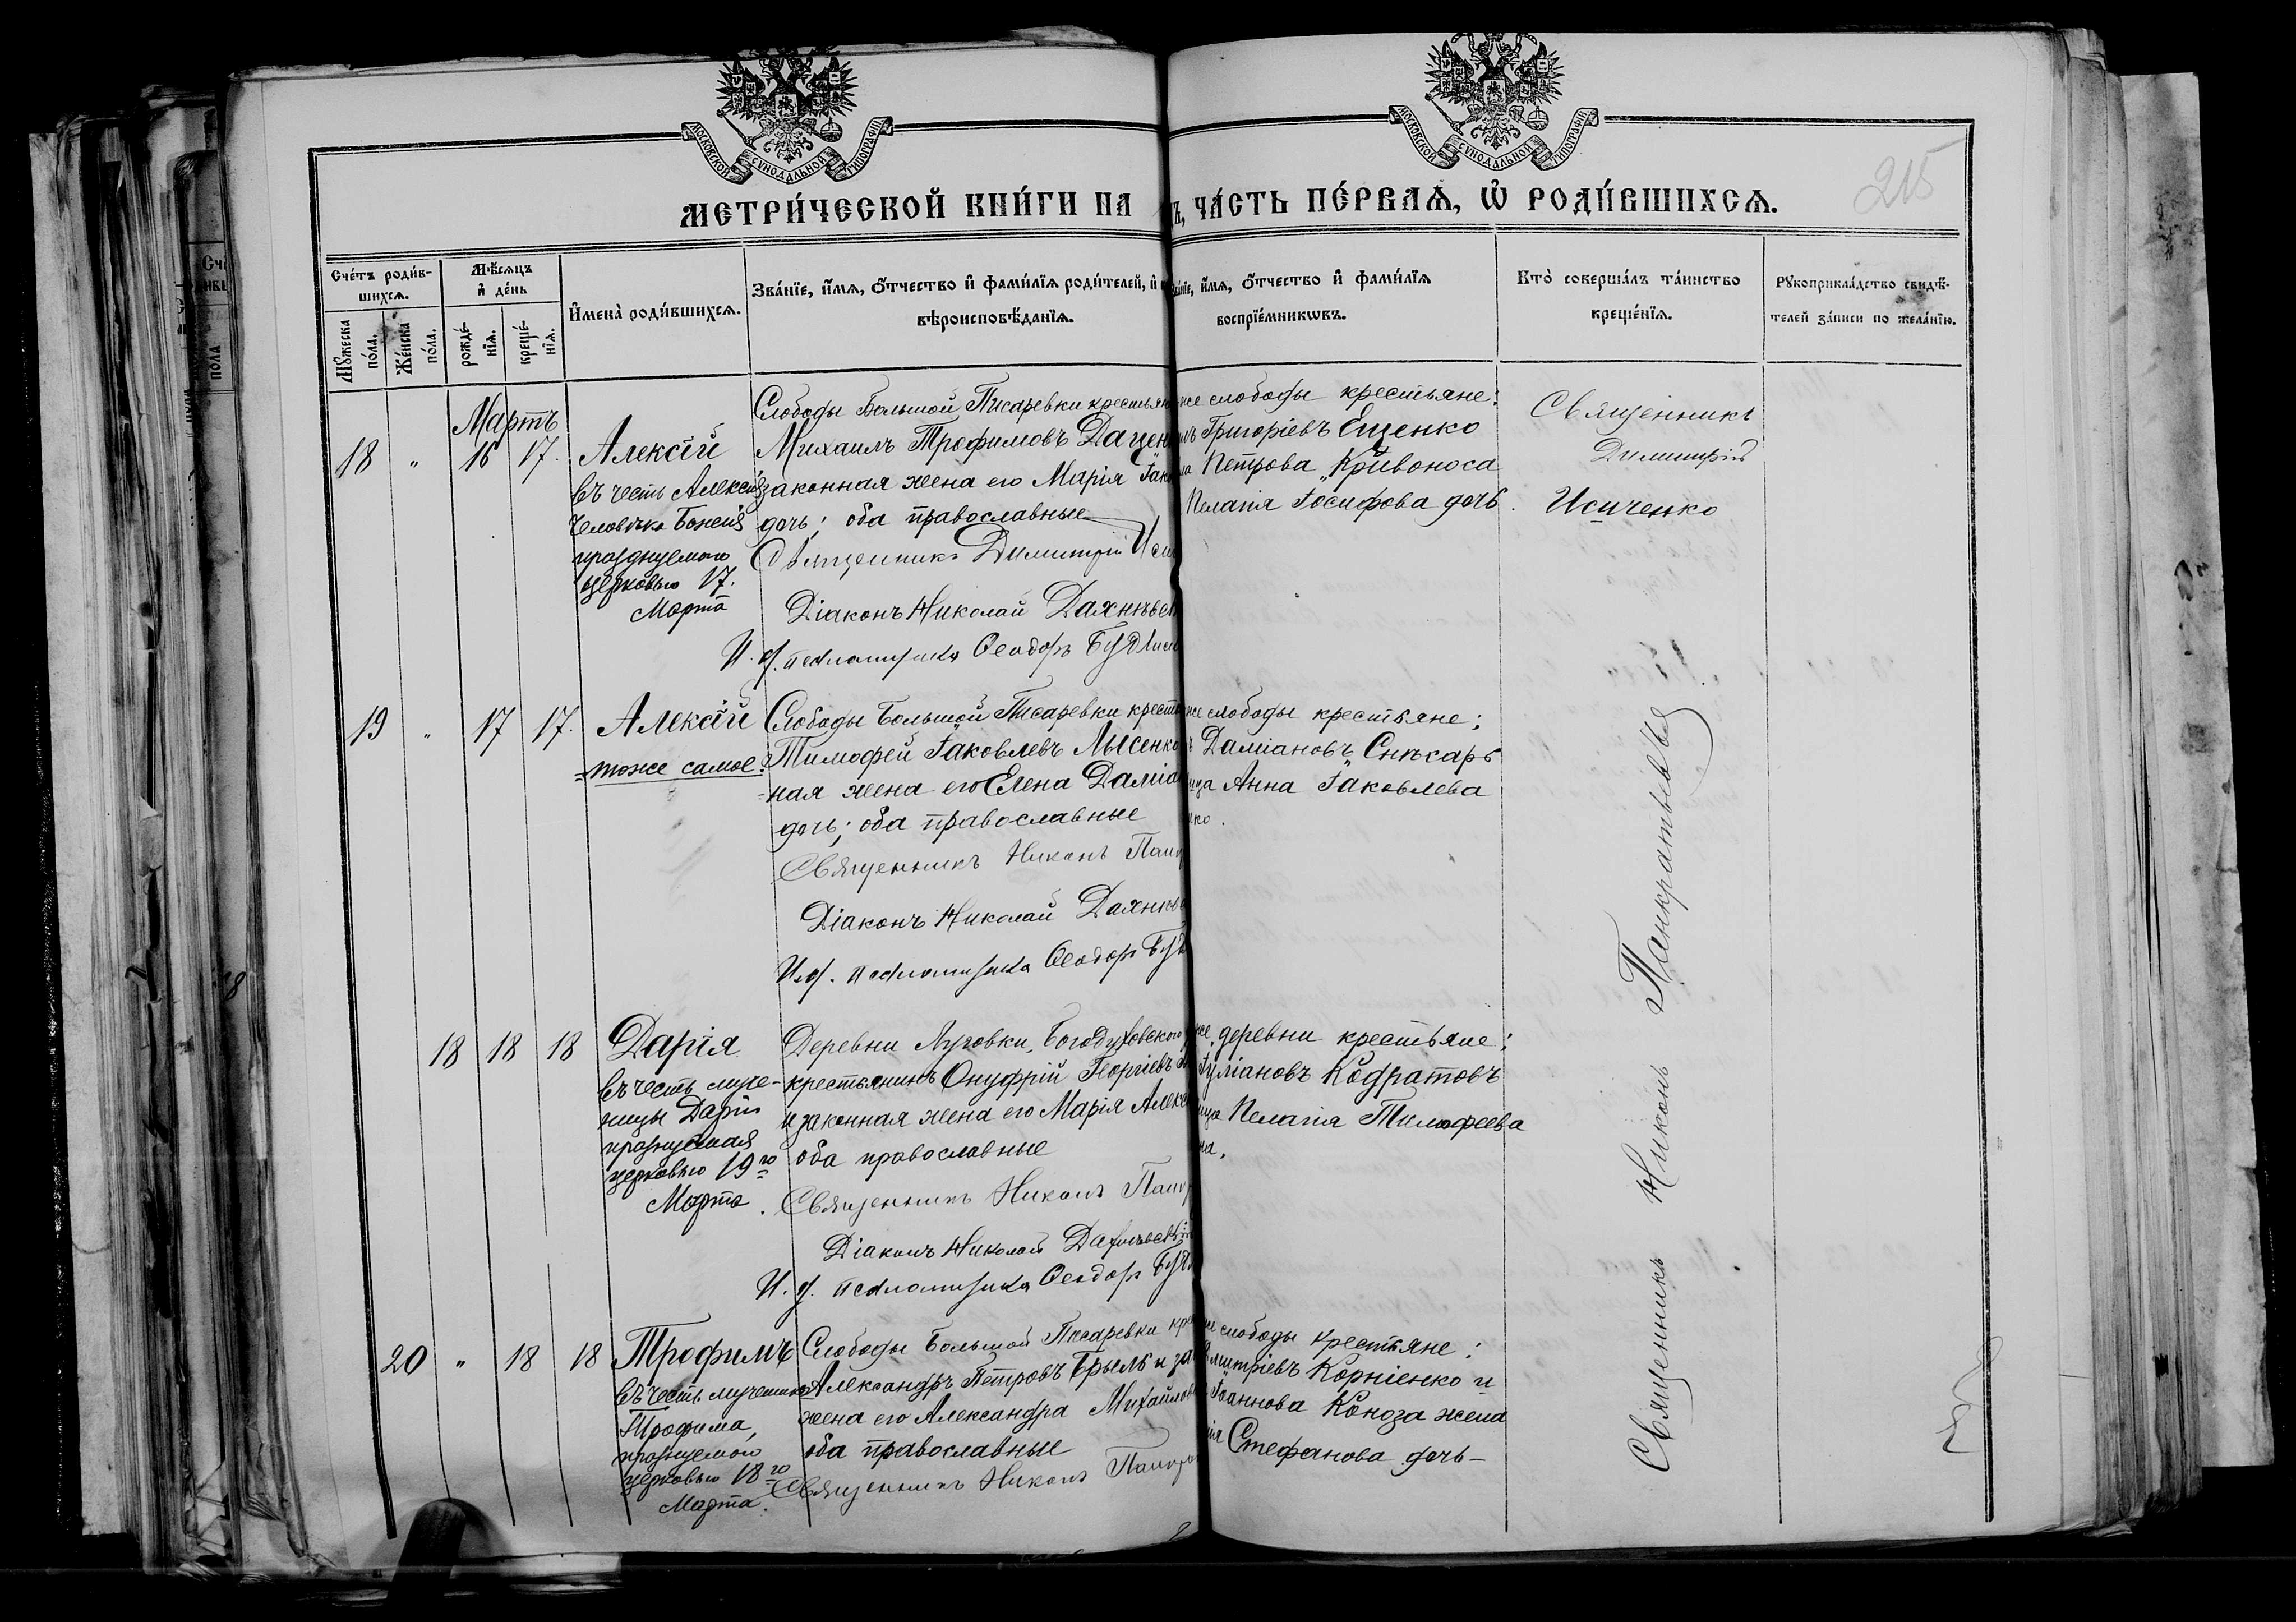 МОСКОВСКОЙ СѴНОДАЛЬНОЙ ТИПОГРАФІИ
МОСКОВСКОЙ СѴНОДАЛЬНОЙ ТИПОГРАФІИ
215
МЕТРИ́ЧЕСКОЙ КНИ́ГИ НА
Ъ, ЧА́СТЬ ПЕ́РВАѦ, Ѡ҆ РОДИ́ВШИХСѦ.
Сче́тъ роди́в-
шихсѧ.
Мѣ́сѧцъ
и҆ де́нь
Мꙋ́жеска
по́ла.
Же́нска
по́ла.
рожде́-
нїѧ.
креще́-
нїѧ.
И҆мена̀ роди́вшихсѧ.
Зва́нїе, и҆́мѧ, ѻ҆́тчество и҆ фами́лїѧ роди́телей, и҆
вѣроисповѣ́данїѧ.
Зва́нїе, и҆́мѧ, ѻ҆́тчество и҆ фами́лїѧ
воспрїе́мникѡвъ.
Кто̀ соверша́лъ та́инство
креще́нїѧ.
Рꙋкоприкла́дство свидѣ́-
телей за́писи по жела́нїю.
Мартъ
18 " 16 17. Алексій
въ честь Алексія
человѣка Божія
празднуемаго
церковью 17.
Марта
Слободы Большой Писаревки крестьян
Михаилъ Трофимовъ Дацен
законная жена его Марія Іак
дочь; оба православные
Священникъ Димитрій Иси
Діаконъ Николай Дахнѣвс
И. д. псаломщика Ѳеодоръ
же слободы крестьяне:
Григоріевъ Ещенко
Петрова Кривоноса
Пелагія Іосифова дочь.
Священникъ
Димитрій
Исиченко
19 " 17 17. Алексій
тоже самое.
Слободы Большой Писаревки крест
Тимофей Іаковлевъ Лысенко
ная жена его Елена Даміа
дочь; оба православные
Священникъ Никонъ Панк
Діаконъ Николай Дахнѣв
И. д. псаломщика Ѳеодоръ
же слободы крестьяне;
Даміановъ Снѣсарь
ица Анна Іаковлева
ко.
18 18 18 Дарія
въ честь муче-
ницы Даріи
празнуемая
церковью 19го
Марта.
Деревни Луговки, Богодуховскаго
крестьянинъ Онуфрій Георгіевъ
и законная жена его Марія Алекс
оба православные
Священникъ Никонъ Панк
Діаконъ Николай Дахнѣвскій
И. д. псаломщика Ѳеодоръ
же деревни крестьяне;
Іуліановъ Кодратовъ
ица Пелагія Тимофеева
на.
20 " 18 18 Трофимъ
въ честь мученика
Трофима,
празнуемаго
церковью 18го
Марта.
Слободы Большой Писаревки кре
Александръ Петровъ Брыль и за
жена его Александра Михайлов
оба православные
Священникъ Никонъ Панкра
слободы крестьяне:
митріевъ Корніенко и
Іоаннова Коноза жена
Стефанова дочь –
Священникъ Никонъ Панкратьевъ